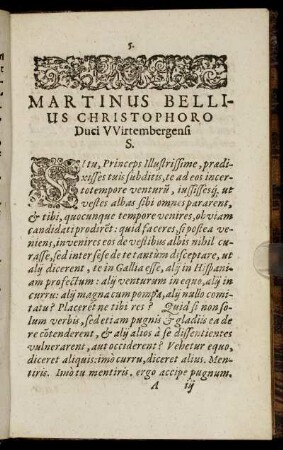 5.
MARTINUS BELLI-
US CHRISTOPHORO
Duci VVirtembergensi
S.
SI tu, Princeps Illustrissime, prædi-
xisses tuis subditis, te ad eos incer-
to tempore venturũ, iussissesq́; ut
vestes albas sibi omnes pararent,
& tibi, quocunque tempore venires, obviam
candidati prodirẽt: quid faceres, si postea ve-
niens, invenires eos de vestibus albis nihil cu-
rasse, sed inter sese de te tantùm disceptare, ut
alij dicerent, te in Gallia esse, alij in Hispani-
am profectum: alij venturum in equo, alij in
curru: alij magna cum pompa, alij nullo comi-
tatu? Placeret ne tibi res? Quid si non so-
lùm verbis, sed etiam pugnis & gladiis ea de
re cõtenderent, & alij alios à se dissentientes
vulnerarent, aut occiderent? Vehetur equo,
diceret aliquis: imò curru, diceret alius. Men-
tiris. Imò tu mentiris, ergo accipe pugnum.
A iij